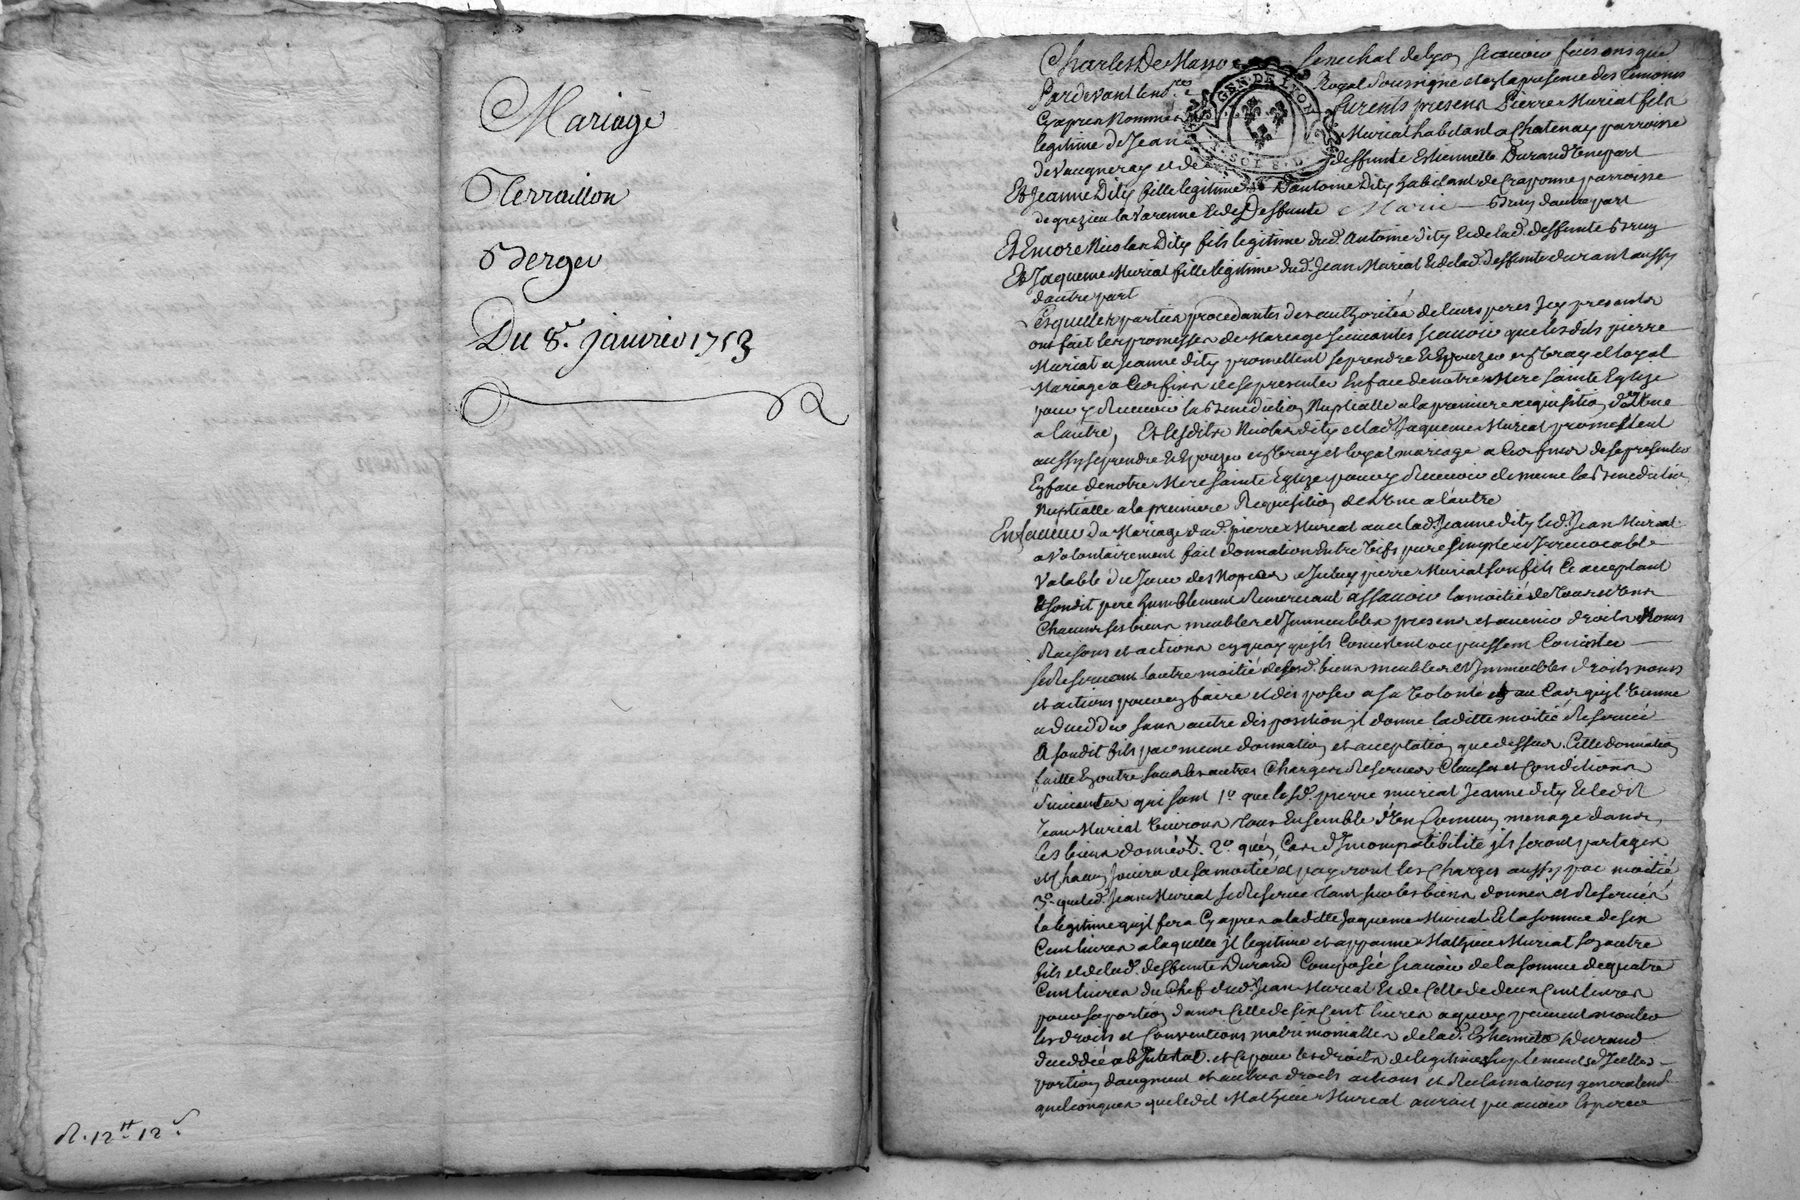 Mariage
Terraillon
Berger
Du 8e. janvier 1753
R. 12tt 12s.
Charles De Masso Senechal de Lyon scavoir faisons que
Pardevant le no.re Royal soussigné et en la presence des temoins
cy apres nommés furents presens Pierre Muriat fils
legitime de Jean Muriat habitant a Chatenay parroisse
de Vaugneray et de deffunte Estiennette Durand d'une part
GEN. DE LYON
SOL 8 D
Et Jeanne Dity fille legitime d'antoine Dity habitant de Craponne parroisse
de grezieu la Varenne et de deffunte Marie Bruy d'autre part
Et Encore Nicolas Dity fils legitime dud. Antoine Dity et de lad. deffunte Bruy
Et Jaqueme Muriat fille legitime dud. Jean Muriat et de lad. deffunte durant aussy
d'autre part
Lesquelles parties procedantes des authorités de leurs peres icy presents
ont fait les promesses de Mariage suivantes scavoir que lesdits pierre
Muriat et Jeanne dity promettent se prendre et Epouzer en vray et loyal
Mariage a Ces fins de se presenter En face de notre Mere sainte Eglize
pour y Recevoir la Benediction Nuptialle a la premiere requisition de l'une
a l'autre, Et lesdits Nicolas dity et lad. Jaqueme Muriat promettent
aussy se prendre et Epouzer en vray et loyal mariage a Ces fins de se presenter
En face de notre Mere sainte Eglize pour y Recevoir de meme la Benediction
Nuptialle a la premiere Requisition de l'une a l'autre
En faveur du Mariage dud. pierre Muriat avec lad. Jeanne dity led. Jean Muriat
a Volontairement fait donnation Entre vifs pure simple et Irrevocable
Valable du Jour des Nopces audit pierre Muriat son fils Ce acceptant
Et sondit pere humblement Remerciant assavoir la moitié de tous et uns
Chacuns ses biens meubles et Immeubles presens et avenir droits Noms
Raisons et actions en quoy qu'ils Consistent ou puissent Consister
se Reservant l'autre moitié desd. biens meubles et Immeubles droits noms
et actions pour en faire et disposer a sa Volonté et au Cas qu'il vienne
a deceder sans autre disposition il donne laditte moitié Reservée
A sondit fils par meme donnation et acceptation que dessus. Cette donnation
faitte En outre sous les autres Charges Reserves Clauses et Conditions
suivantes qui sont 1o que lesd. pierre muriat Jeanne dity et ledit
Jean Muriat vivrons tous Ensemble d'un Commun menage dans
les biens donnés. 2o. qu'en Cas d'Incompatibilité ils seront partagés
et Chacun Jouira de sa moitié et payeront les Charges aussy par moitié
3o. que led. Jean Muriat se Reserve tant sur les biens donnés et Reservés
la legitime qu'il fera Cy apres a laditte Jaqueme Muriat Et la somme de six
Cent livres a laquelle il legitime et appanne Mathieu Muriat son autre
fils et de lad. deffunte Durand Composée scavoir de la somme de quatre
Cent livres du Chef dud. Jean Muriat Et de Celle de deux Cent livres
pour sa portion dans Celle de six Cent livres a quoy peuvent monter
les droits et Conventions matrimonialles de lad. Estiennette Durand
decedée ab Intestat. et Ce pour les droits de legitime suplement d'Icelle
portion d'augment et autres droits actions et Reclamations generalement
quelconques que ledit Mathieu Muriat auroit pu avoir Esperer